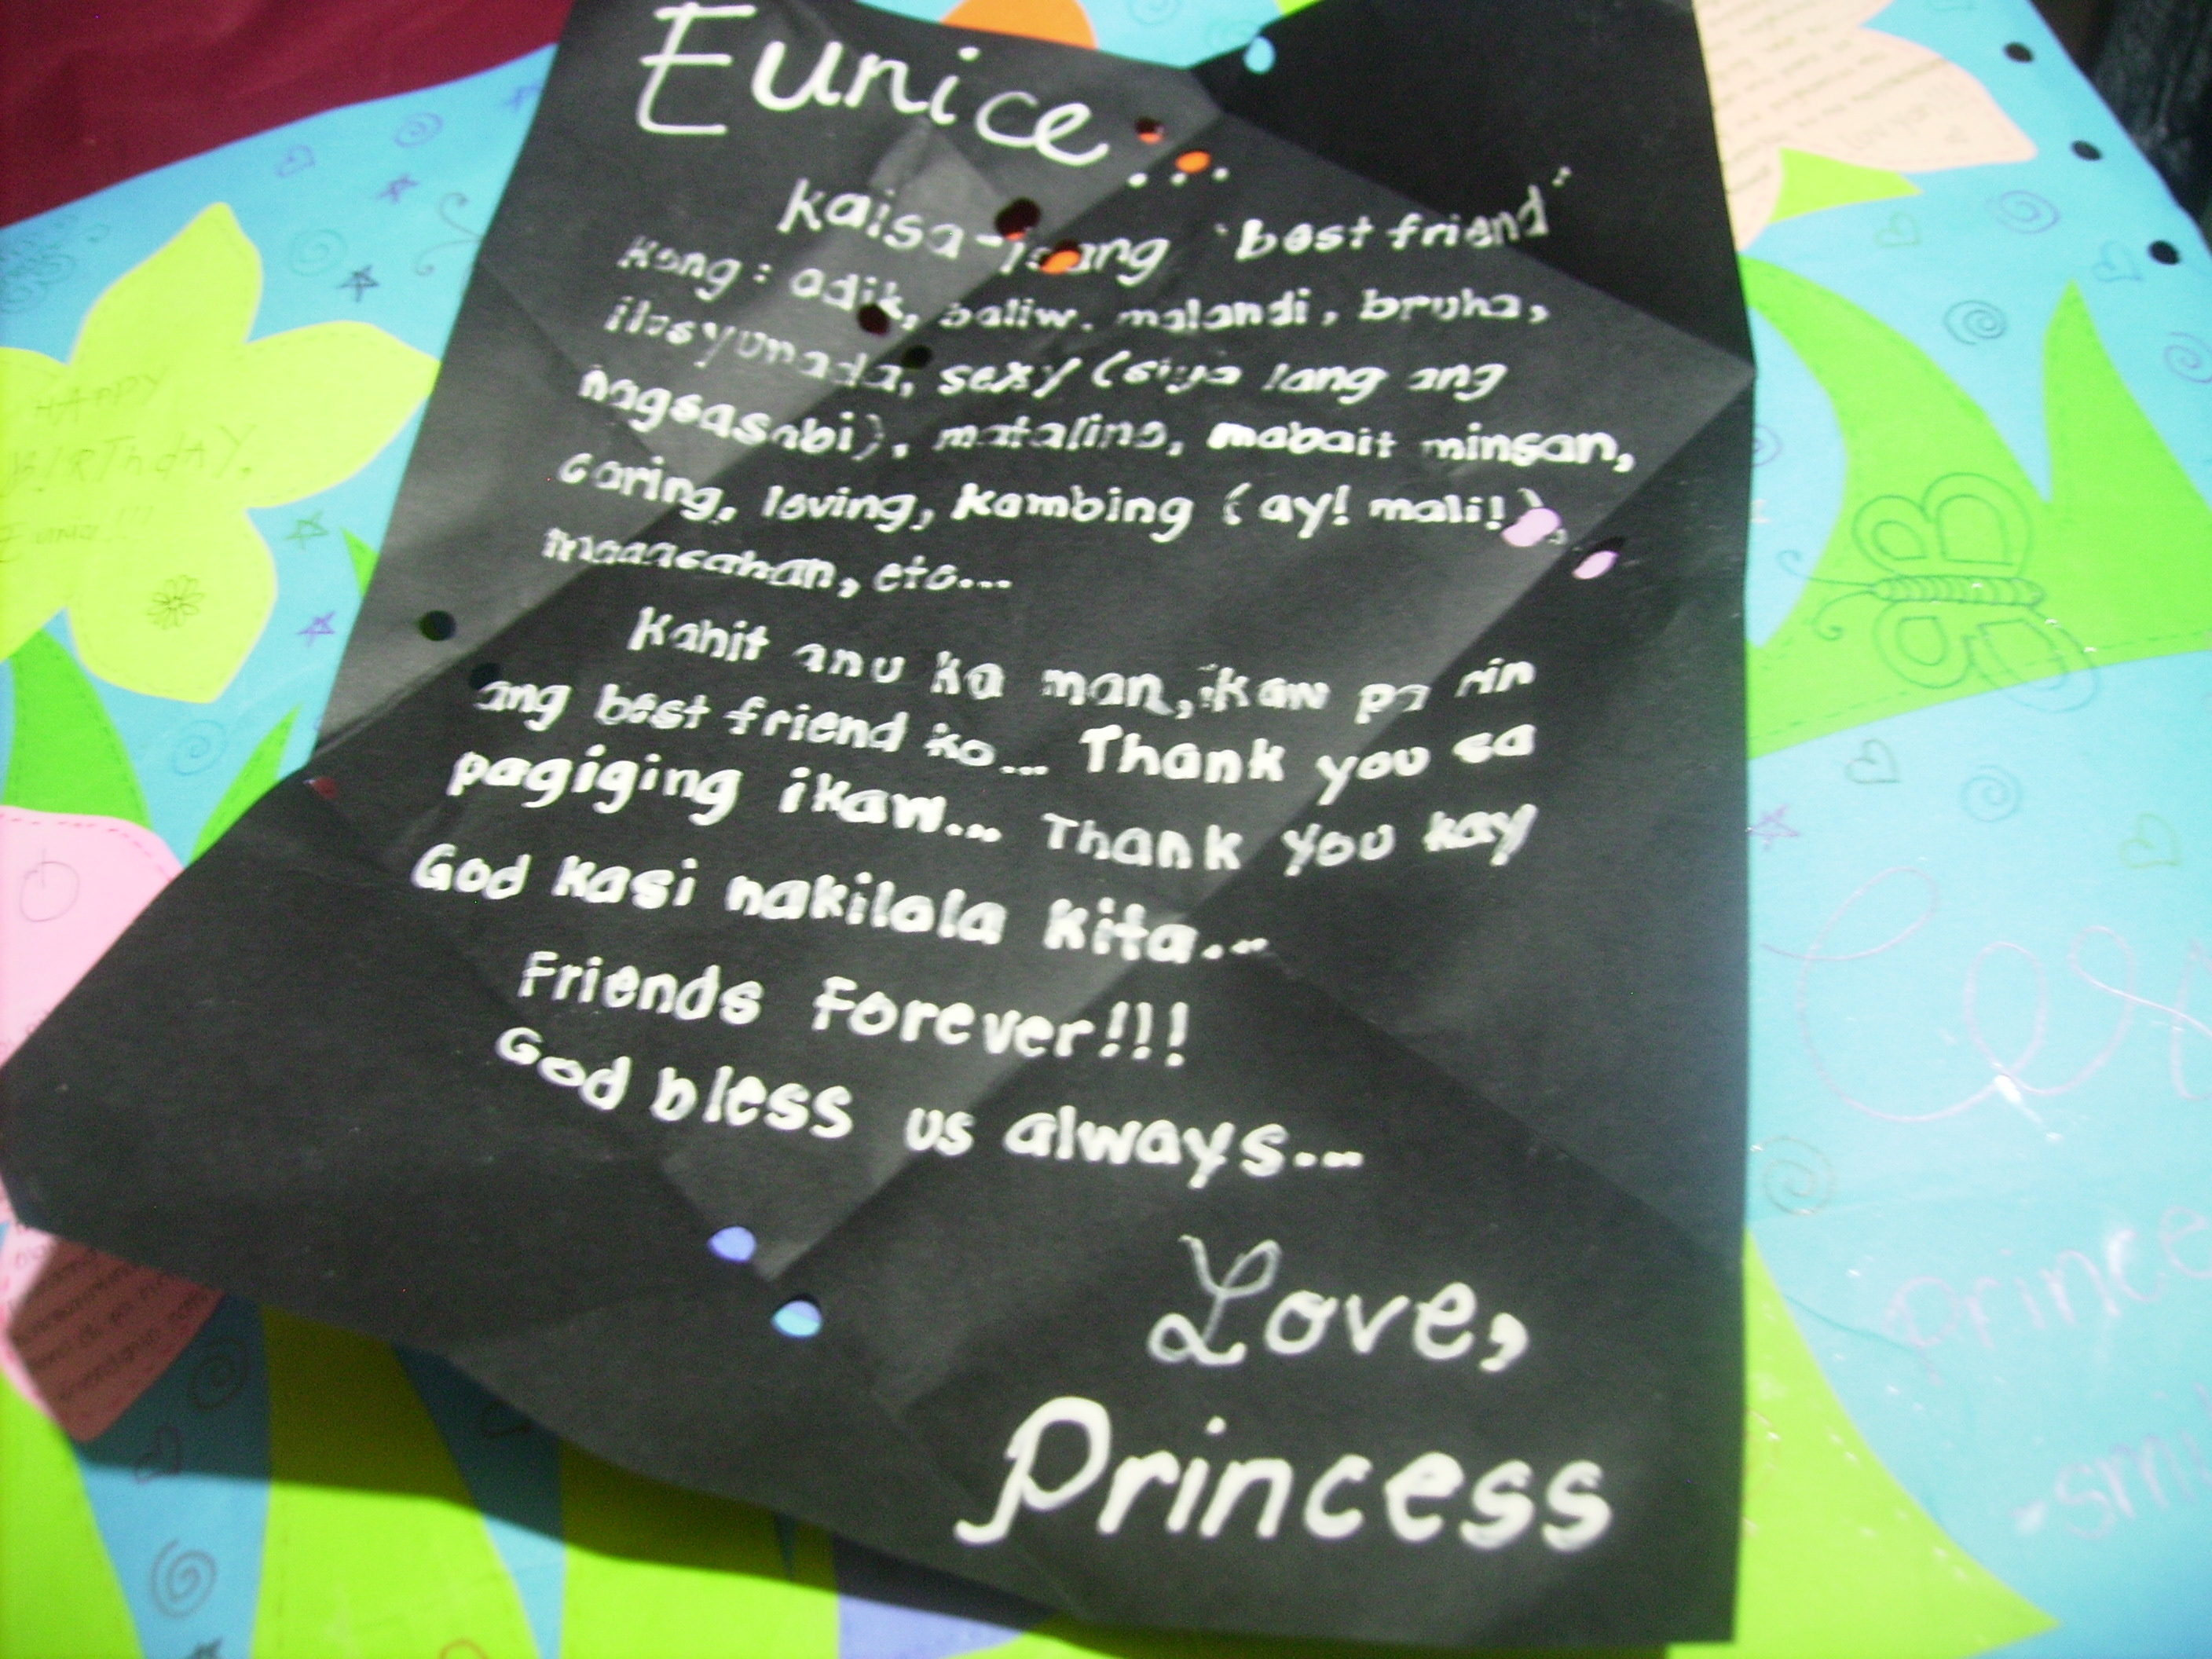 Eunice...
Kaisa-isang 'best friend'
kong: adik, baliw, malandi, bruha,
ilusyunada, sexy (siya lang ang
nagsasabi), matalino, mabait minsan,
caring, loving, kambing (ay! mali!),
maaasahan, etc...
Kahit anu ka man, ikaw pa rin
ang best friend ko... Thank you sa
pagiging ikaw... Thank you kay
God kasi nakilala kita...
Friends Forever!!!
God bless us always...
Love,
Princess
HAPPY
BIRThdAY,
Eunice!!!
prince